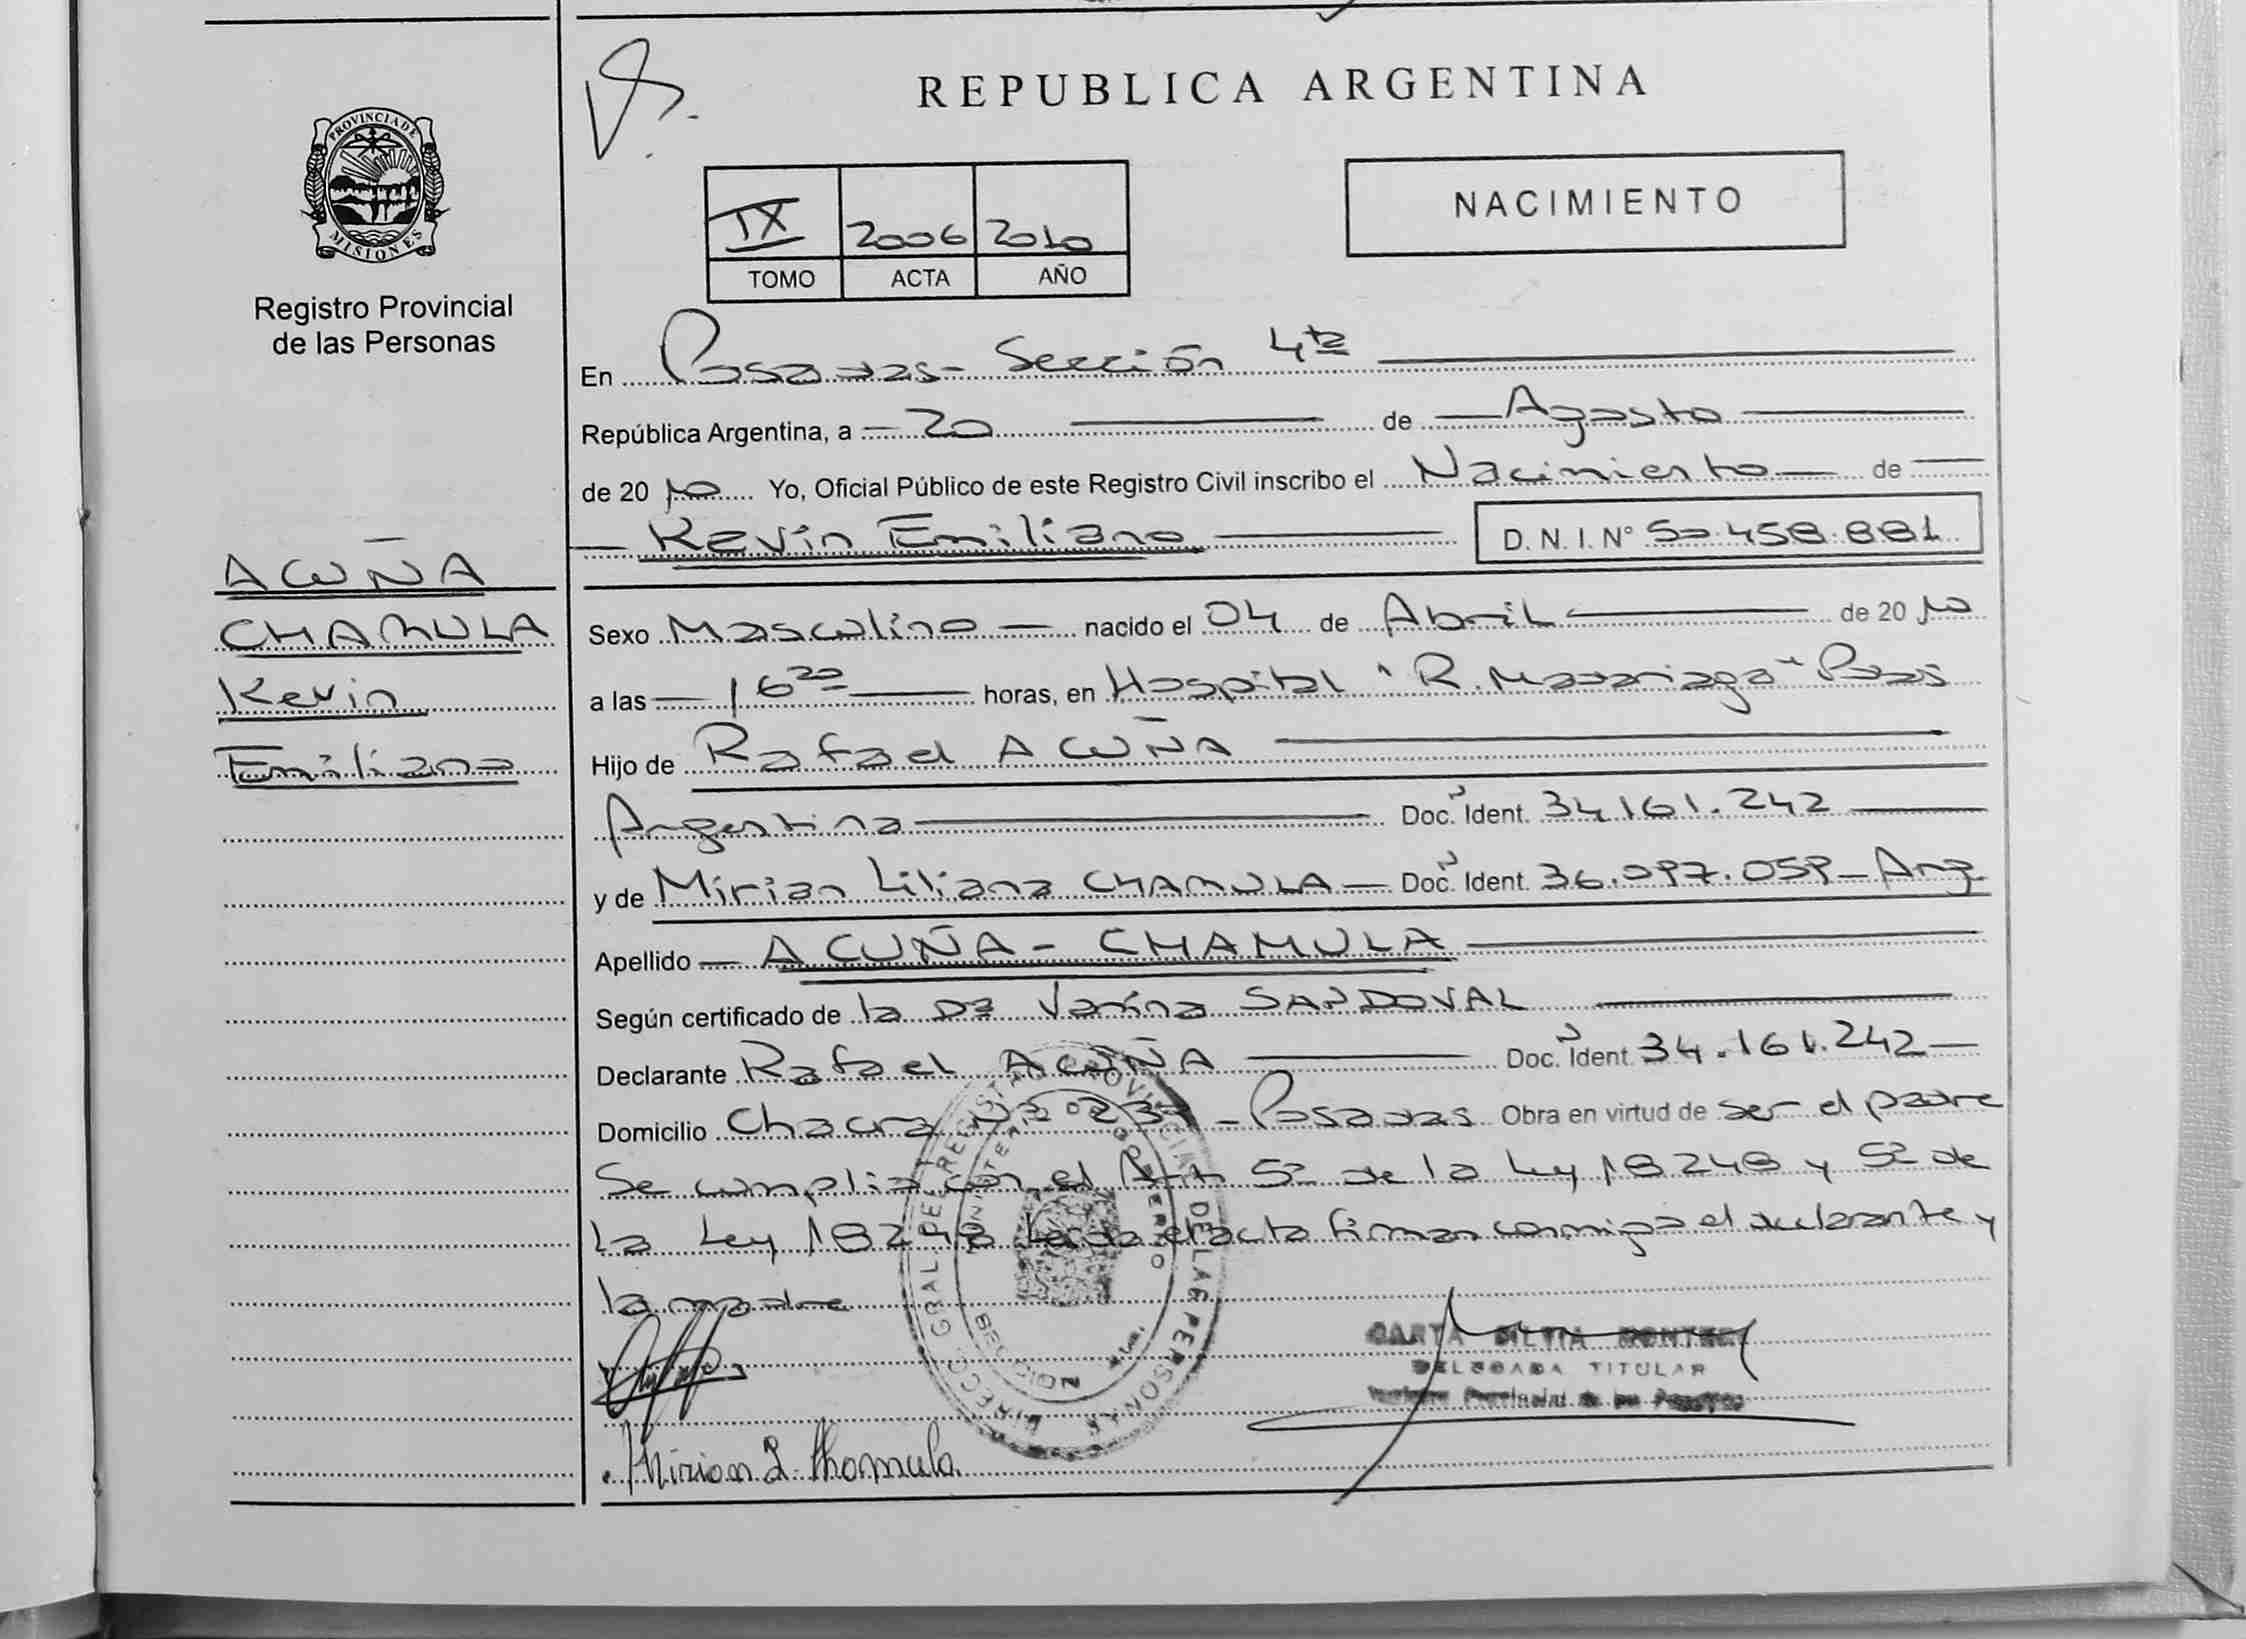 REPUBLICA ARGENTINA
PROVINCIA DE
MISIONES
Registro Provincial
de las Personas
NACIMIENTO
IX 2006 2010
TOMO ACTA AÑO
En Posadas - Sección 4ta
República Argentina, a 20 de Agosto
de 20 10 Yo, Oficial Público de este Registro Civil inscribo el Nacimiento de
Kevin Emiliano D. N. I. N° 50.458.881
ACUÑA
CHAMULA
Kevin
Emiliano
Sexo Masculino nacido el 04 de Abril de 20 10
a las 16 20 horas, en Hospital "R. Madariaga" Pdas
Hijo de Rafael ACUÑA
Argentina Doc. Ident. 34.161.242
y de Mirian Liliana CHAMULA Doc. Ident. 36.097.059 - Arg
Apellido ACUÑA - CHAMULA
Según certificado de la Dra SANDOVAL
Declarante Rafael ACUÑA Doc. Ident. 34.161.242
Domicilio Chacra Nº Posadas Obra en virtud de ser el padre
Se cumplió con el Art 5º de la Ley 18248 y 5º de
la Ley 18248 Leída el acta firman conmigo el declarante y
la madre
DIRECC. GRAL DEL REGISTRO PROVINCIAL DE LAS PERSONAS
SECCION
DELEGADA TITULAR
Provincial de las Personas
Mirian L. Chamula